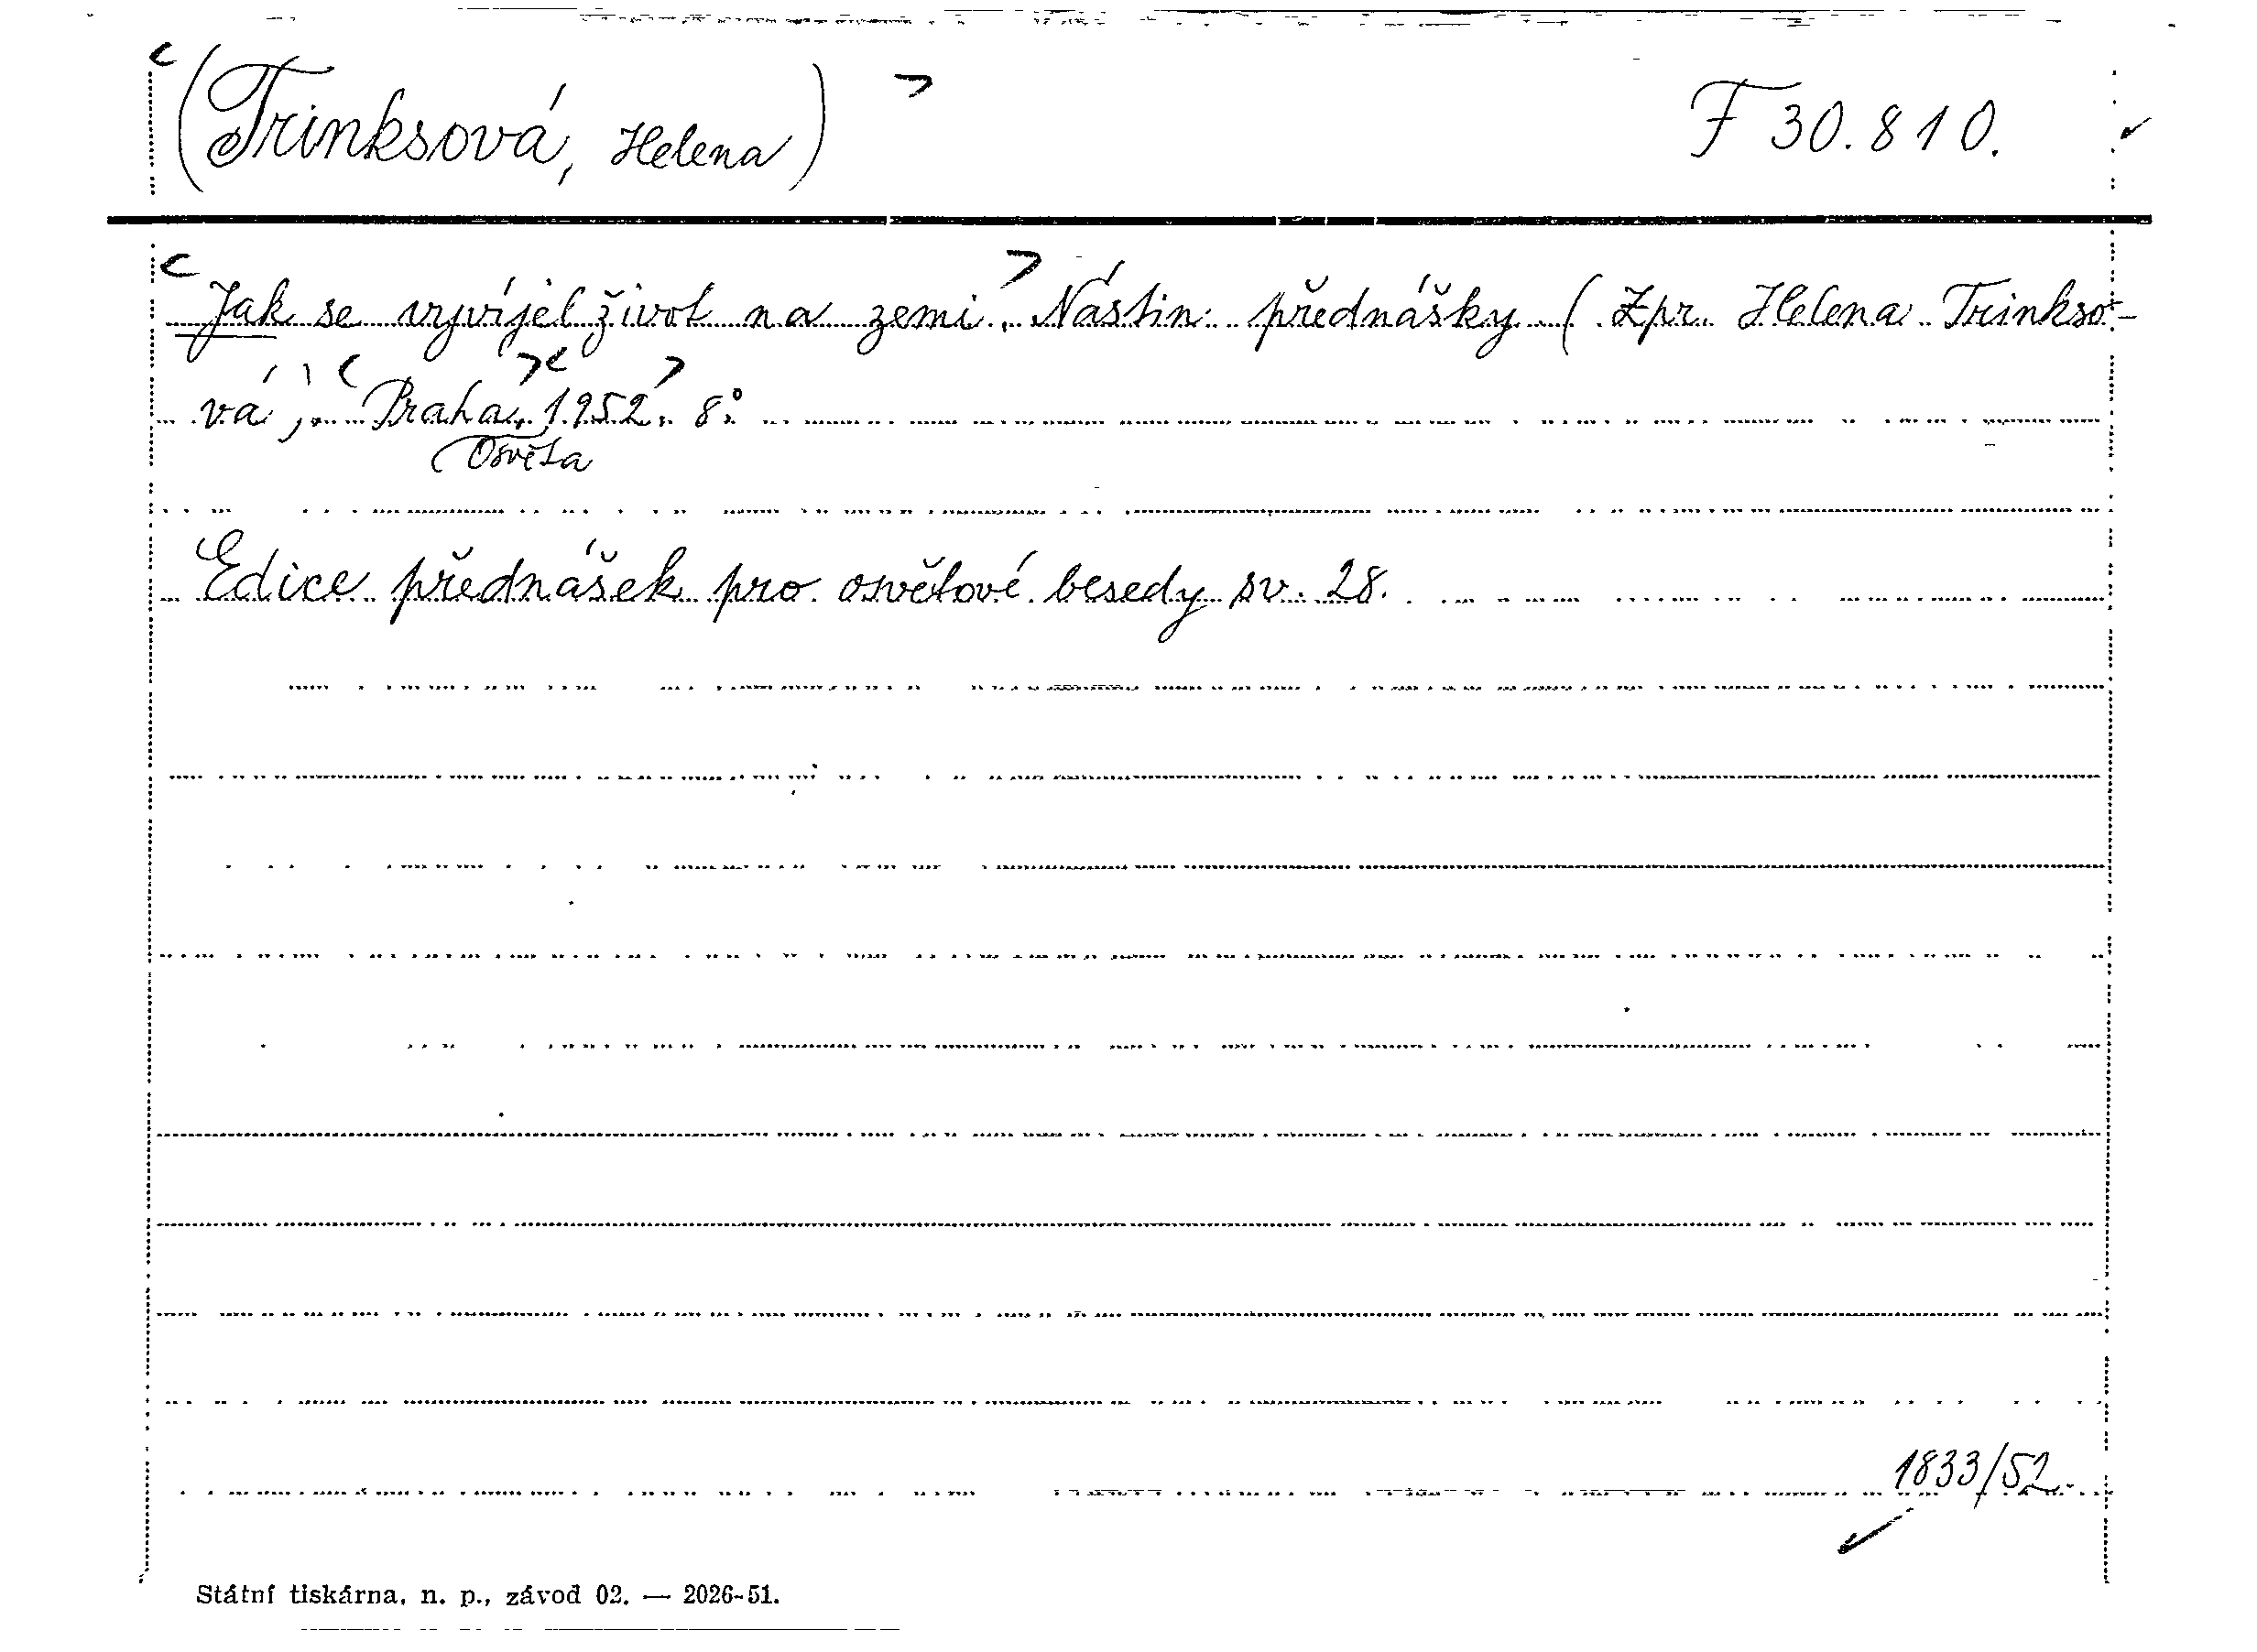 (Trinksová, Helena) F 30.810.
Jak se vyvíjel život na zemi. Nástin přednášky (Zpr. Helena Trinkso-
vá). Praha, 1952. 8°.
Osvěta
Edice přednášek pro osvětové besedy sv. 28.
1833/52.
Státní tiskárna, n. p., závod 02. — 2026-51.